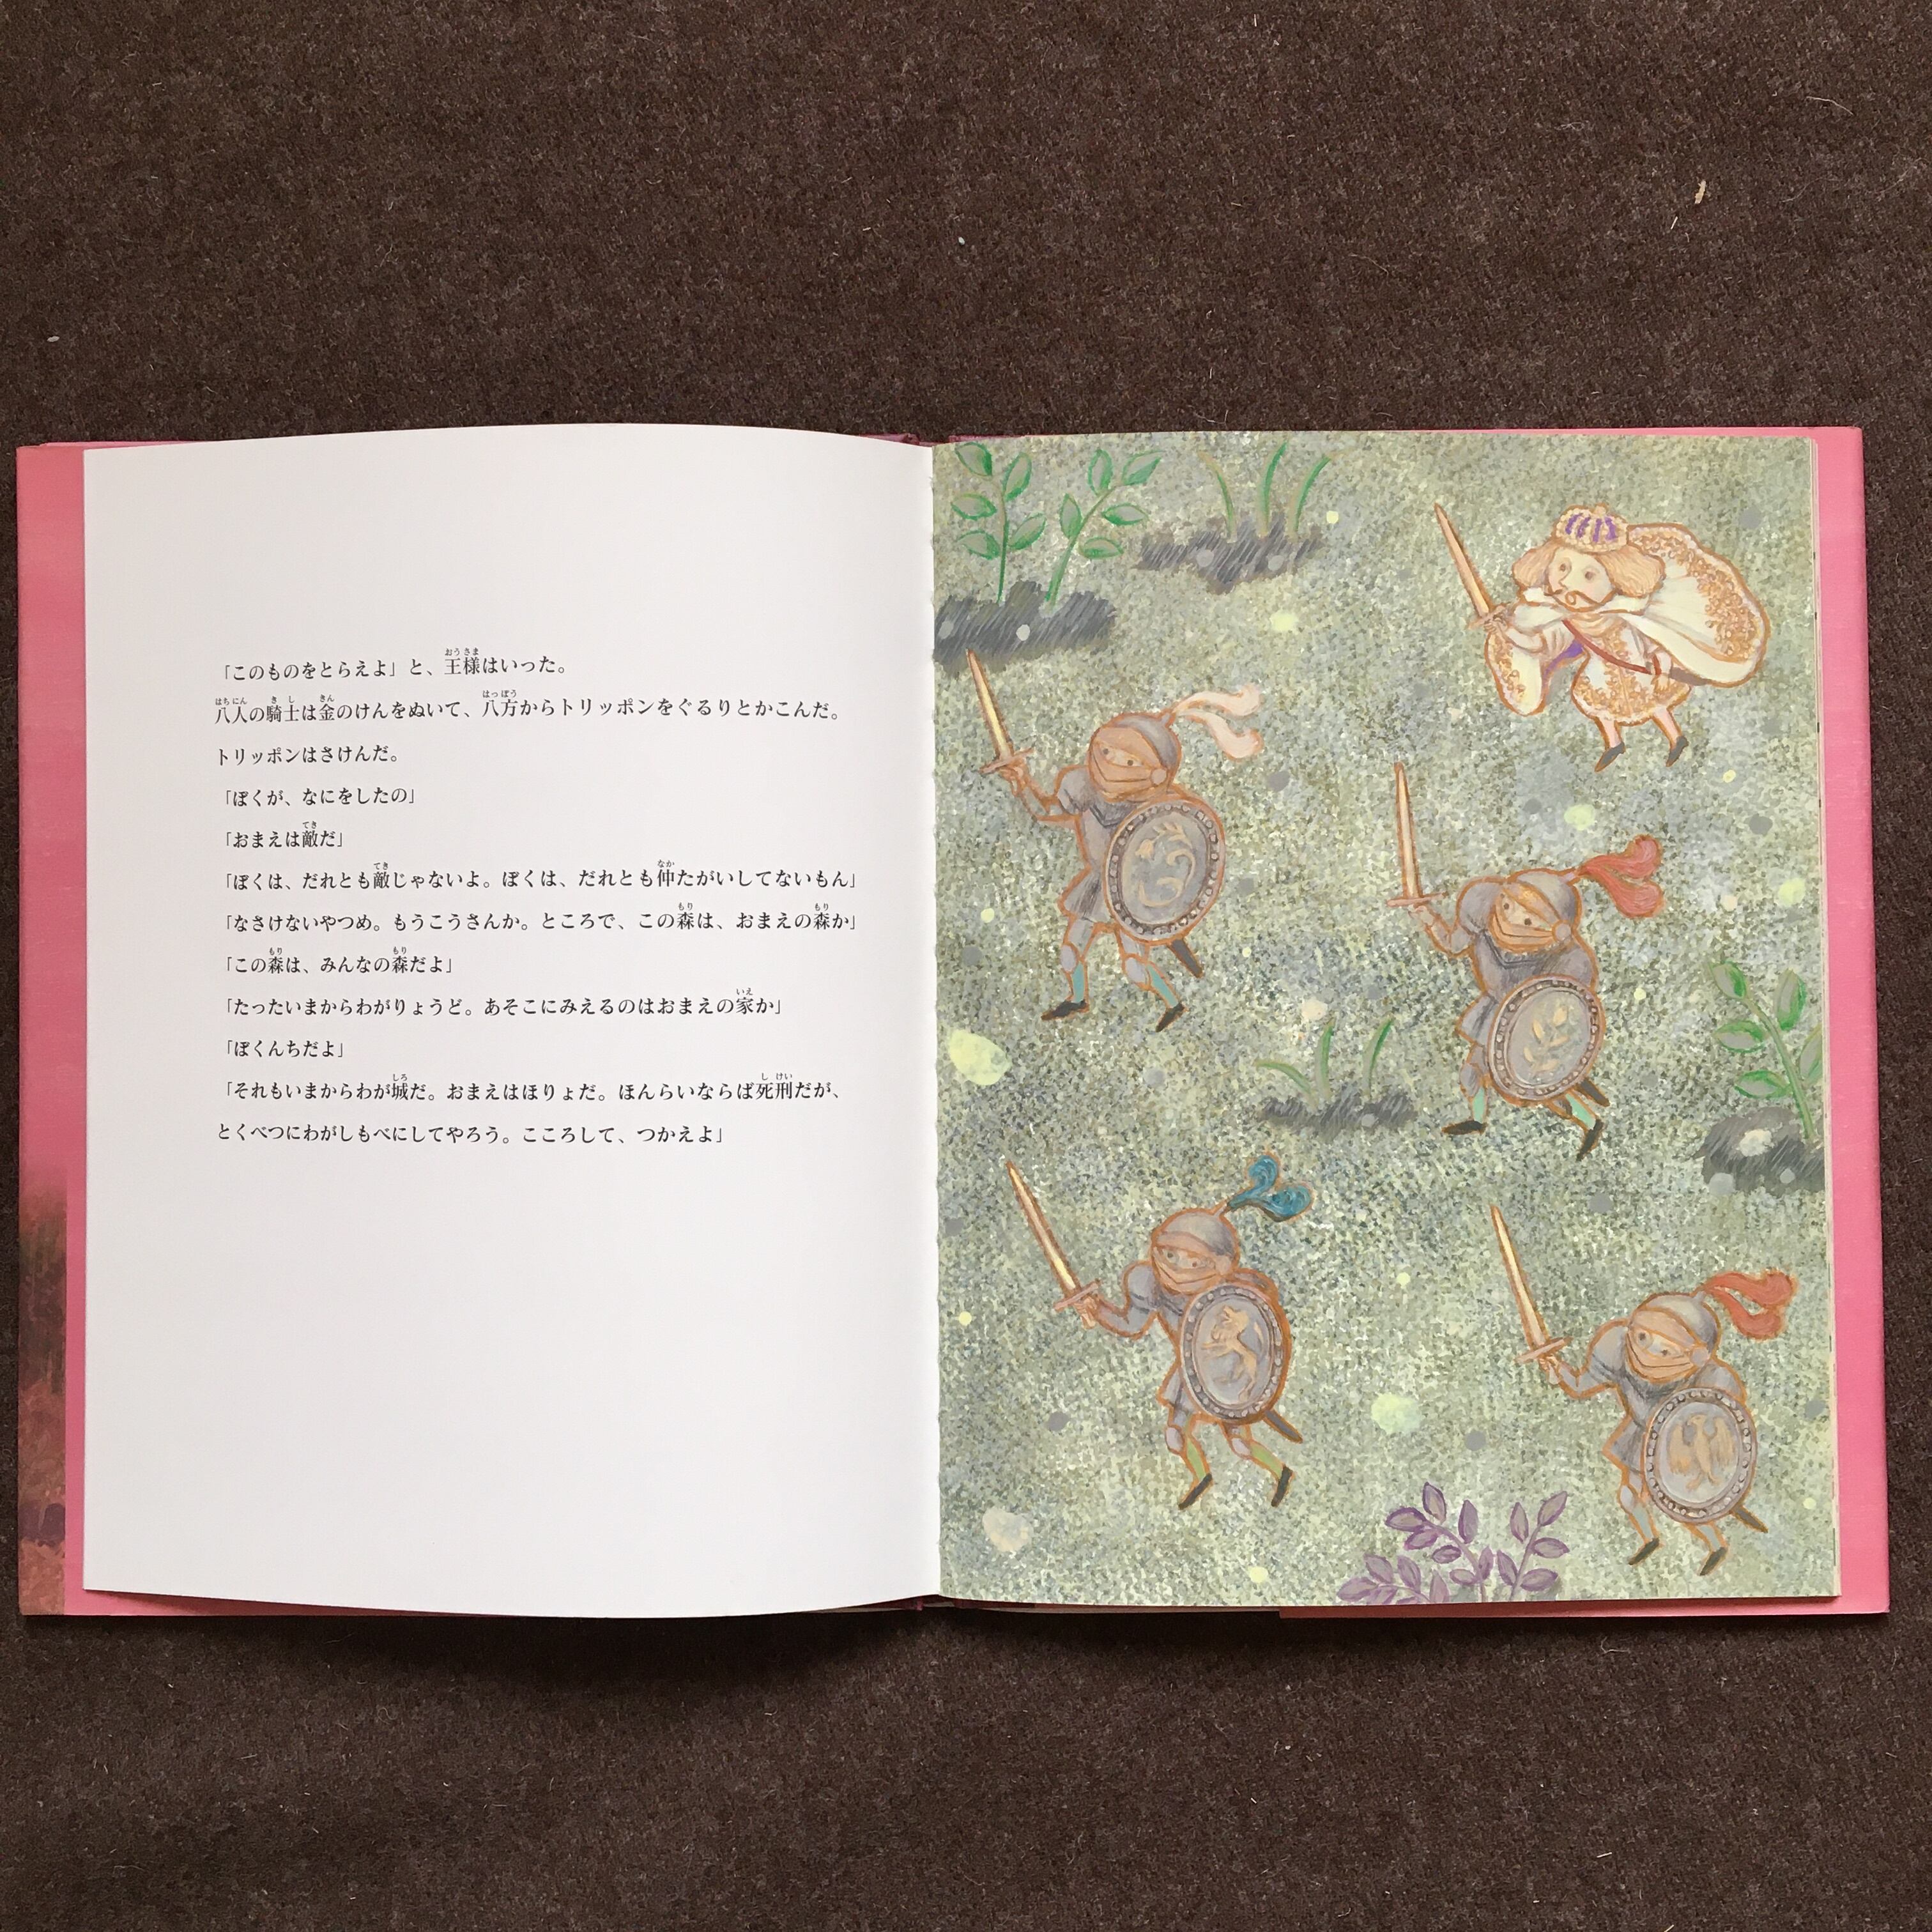 「このものをとらえよ」と、王様はいった。
八人の騎士は金のけんをぬいて、八方からトリッポンをぐるりとかこんだ。
トリッポンはさけんだ。
「ぼくが、なにをしたの」
「おまえは敵だ」
「ぼくは、だれとも敵じゃないよ。ぼくは、だれとも仲たがいしてないもん」
「なさけないやつめ。もうこうさんか。ところで、この森は、おまえの森か」
「この森は、みんなの森だよ」
「たったいまからわがりょうど。あそこにみえるのはおまえの家か」
「ぼくんちだよ」
「それもいまからわが城だ。おまえはほりょだ。ほんらいならば死刑だが、
とくべつにわがしもべにしてやろう。こころして、つかえよ」